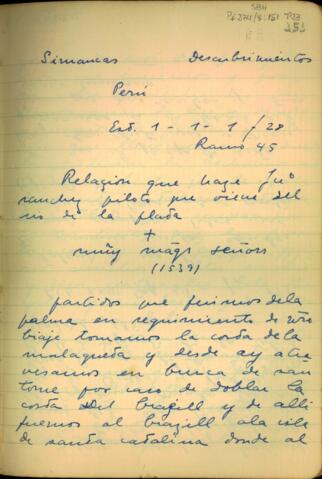 SBH
P6274/3:151 P23
151
Simancas Descubrimientos
Perú
Est. 1 - 1 - 1 / 28
Ramo 45
Relacion que haze Juº
sanchez piloto que viene del
rio de la plata
+
muy mags señors
(1539)
partidos que fuimos de la
palma en seguimiento de nro
biaje tomamos la costa de la
malagueta y desde ay atra
vesamos en busca de san
tome por caso de doblar la
costa del brazill y de alli
fuemos al brazill a la isla
de santa catalina donde al